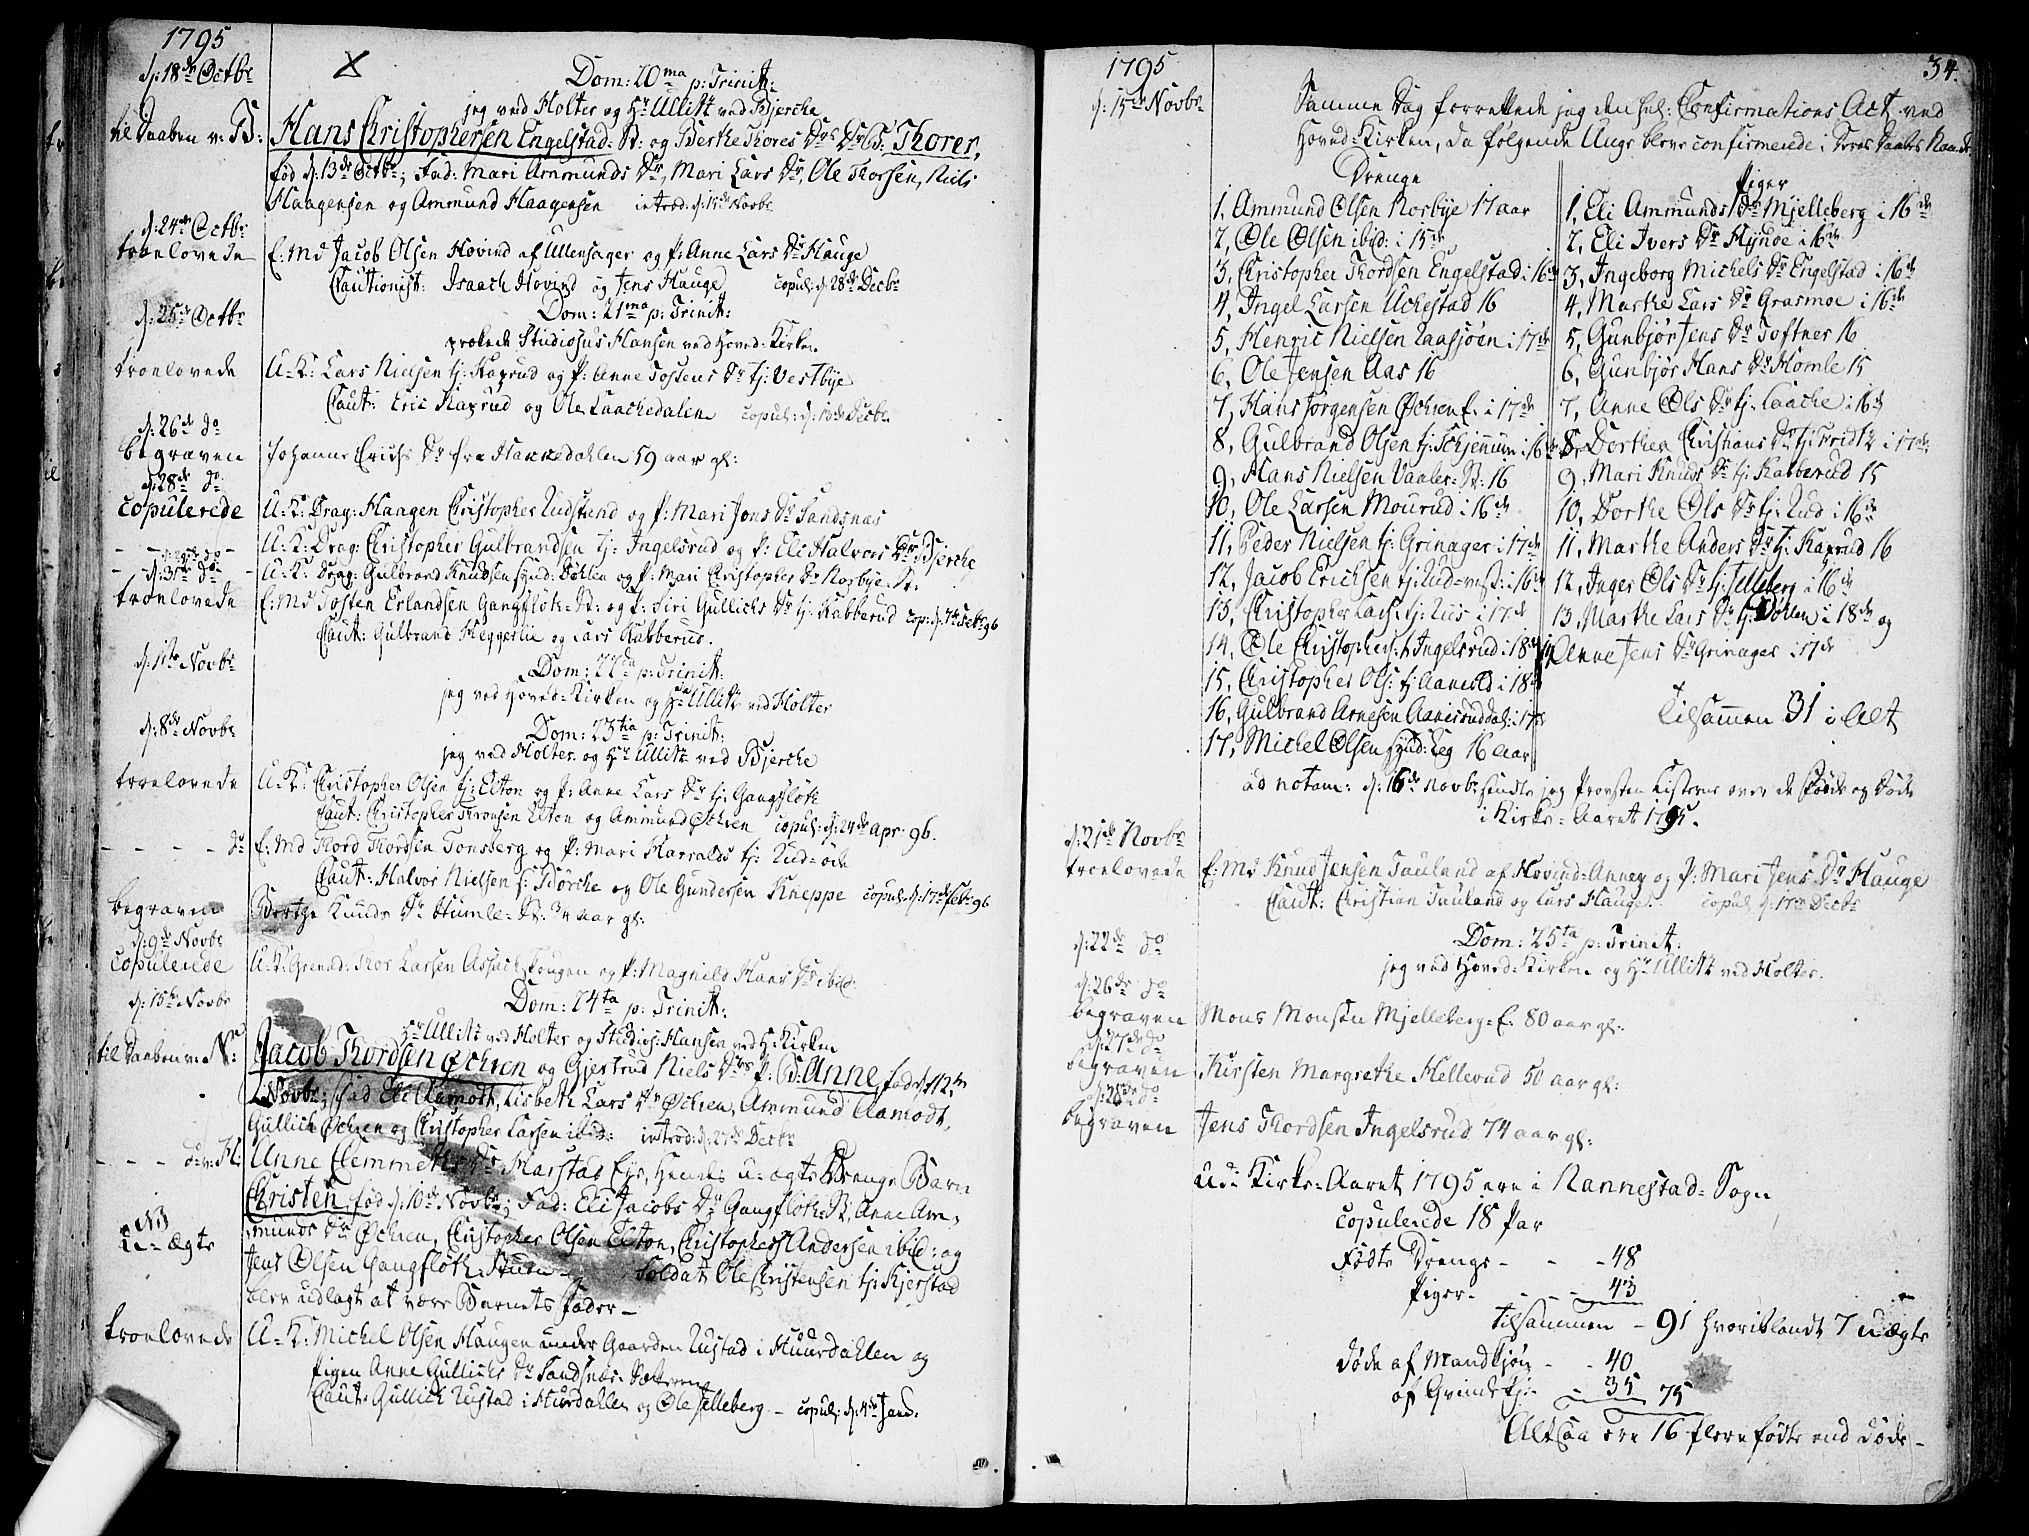 1795
d: 18de Octbr
Dom: 20ma p: Trinit:
jeg ved Holter og Hr Ullitz ved Bjerche
til Daaben v: B:
Hans Christophersen Engelstad-N: og Berthe Thores Dr Dr B: Thorer,
fød d: 13de Octbr; Fad: Mari Ammunds Dr, Mari Lars Dr, Ole Thorsen, Niels
Haagensen og Ammund Haagensen introd: d: 15de Novbr
d: 24de Octbr
troelovede
E: Md Jacob Olsen Hovind af Ullensager og P: Anne Lars Dr Hauge
Cautionist: Isaach Hovind og Jens Hauge copul: d: 28de Decbr
d: 25de Octbr
Dom: 21ma p: Trinit:
Studiosus Hansen ved Hoved-Kirken
troelovede
U-K: Lars Nielsen tj: Kaxrud og P: Anne Tostens Dr tj: Vestbye
Caut: Eric Kaxrud og Ole Laachedalen copul: d: 13de Decbr
d: 26de do
begraven
Johanne Erichs Dr fra Hakkedahlen 59 aar gl:
d: 28de do
copulerede
U-K: Drag: Haagen Christopher Rudstand og P: Mari Jons Dr Sandsnæs
U-K: Drag: Christopher Gulbrandsen tj: Ingelsrud og P: Eli Halvors Dr Bjerche
d: 31te do
U-K: Drag: Gulbrand Knudsen Døhlen og P: Mari Christopher Dr Nosbye-N:
troelovede
E: Md Tosten Erlandsen Gangfløth-N: og P: Siri Gullichs Dr tj: Kabberud cop: d: 7de Febr 96
Caut: Gulbrand Heggerlie og Lars Kabberud.
d: 1ste Novbr
Dom: 22da p: Trinit:
jeg ved Hoved-Kirken og Hr Ullitz ved Holter
d: 8de Novbr
Dom: 23tia p: Trinit:
jeg ved Holter og Hr Ullitz ved Bjerche
troelovede
U-K: Christopher Olsen tj: Elton og P: Anne Lars Dr tj: Gangfløth
Caut: Christopher Elton og Ammund Øchren copul: d: 24de Apr: 96.
- - - - do
E: Md Thord Thordsen Tonsberg og P: Mari Harralds tj: Rud-øde
Caut: Halvor Nielsen Børche og Ole Gundersen Kneppe copul: d: 17de Febr 96
begraven
Berthe Knuds Dr Humle-N: 3/4 aar gl:
d: 9de Novbr
copulerede
U-K: Grenad: Thor Larsen Assachskougen og P: Magnild Hans Dr ibid:
d: 15de Novbr
Dom: 24ta p: Trinit:
Hr Ullitz ved Holter og Studios: Hansen ved H: Kirken
til Daaben v: N:
Jacob Thordsen Øchren og Gjertrud Niels Drs P: B: Anne, fød d: 12te
Novbr; Fad Eli Aamodt, Lisbeth Lars Dr Øchren, Ammund Aamodt,
Gullich Øchren og Christopher Larsen ibid: introd: d: 27de Decbr
- - - do v: H:
Anne Clemmets Dr Harstad Eje, Hendes u-ægte Drenge Barn
Christen, fød d: 10de Novbr; Fad: Eli Jacobs Dr Gangfløth-N, Anne Am-
munds Dr Øchren, Christopher Olsen Elton, Christopher Andersen ibid: og
NB
u-ægte
Jens Olsen Gangfløth Soldat Ole Christensen tj: Kjerstad
blev udlagt at være Barnets Fader -
troelovede
U-K: Michel Olsen Haugen under Gaarden Rustad i Huurdahlen og
Pigen Anne Gullichs Dr Sandsnæs-
Caut: Gullich Rustad i Hurdahlen og Ole Jelleberg - copul: d: 4de Jan:
34.
1795
d: 15de Novbr
Samme Dag forrettede jeg den hel: Confirmations Act ved
Hoved-Kirken, da følgende Unge bleve confirmerede i Deres Daabs Naade
Drenge
1, Ammund Olsen Nosbye 17 aar
2, Ole Olsen ibid: i 15de
3, Christopher Thordsen Engelstad i 16de
4, Ingel Larsen Uchestad 16
5, Henric Nielsen Laasjøen i 17de
6, Ole Jensen Aas 16
7, Hans Jørgensen Øchren E. i 17de
8, Gulbrand Olsen tj: Schjennum i 16de
9, Hans Nielsen Vaaler-N: 16
10, Ole Larsen Mourud i 16de
11, Peder Nielsen tj: Grinager i 17de
12, Jacob Erichsen tj: Rud-vest: i 16de
13, Christopher Lars: tj: Lus i 17de
14, Ole Christophers: tj: Ingelsrud i 18de
15, Christopher Ols: tj: Aaneld i 18de
16, Gulbrand Arnesen i 17de
17, Michel Olsen 16 aar
Piger
1, Eli Ammunds Dr Mjelleberg i 16de
2, Eli Ivers Dr Hynoe i 16de
3, Ingeborg Michels Dr Engelstad i 16de
4, Marthe Lars Dr Grasmoe i 16de
5, Gunbjør Jens Dr Toftner 16
6, Gunbjør Hans Dr Homle 15
7, Anne Ols Dr tj: Laache i 16de
8, Dorthea Christians Dr tj: i 17de
9, Mari Knuds Dr tj: Kabberud 15
10, Dorthe Ols Dr tj: Rud i 16de
11, Marthe Anders Dr tj: Kaxrud 16
12, Inger Ols Dr tj: Jelleberg i 16de
13, Marthe Lars Dr tj: Døhlen i 18de og
14, Anne Jens Dr Grinager i 17de
Tilsammen 31 i Alt
ad notam: d: 16de Novbr sendte jeg Provsten Listerne over de Fødde og Døde
i Kirke-Aaret 1795.
d: 21de Novbr
troelovede
E: Md Knud Jensen Tauland af Hovind-Annex og P: Mari Jens Dr Hauge
Caut: Christian Tauland og Lars Hauge. copul d: 17de Decbr
d: 22de do
Dom: 25ta p: Trinit:
jeg ved Hoved-Kirken og Hr Ullitz ved Holter.
d: 26de do
begraven
Mons Monsen Mjelleberg-E. 80 aar gl:
d: 27de do
begraven
Kirsten Margrethe Hellerud 50 aar gl:
d: 28de do
begraven
Jens Thordsen Ingelsrud 74 aar gl:
Udi Kirke-Aaret 1795 ere i Nannestad-Sogn
copulerede 18 Par
Fødte Drenge - - - 48
Piger - - - - 43
Tilsammen - 91 hvoriblandt 7 uægte
Døde af Mandkjøn - - 40
af Qvindekj: - 35 75
Altsaa ere 16 flere fødte end døde -